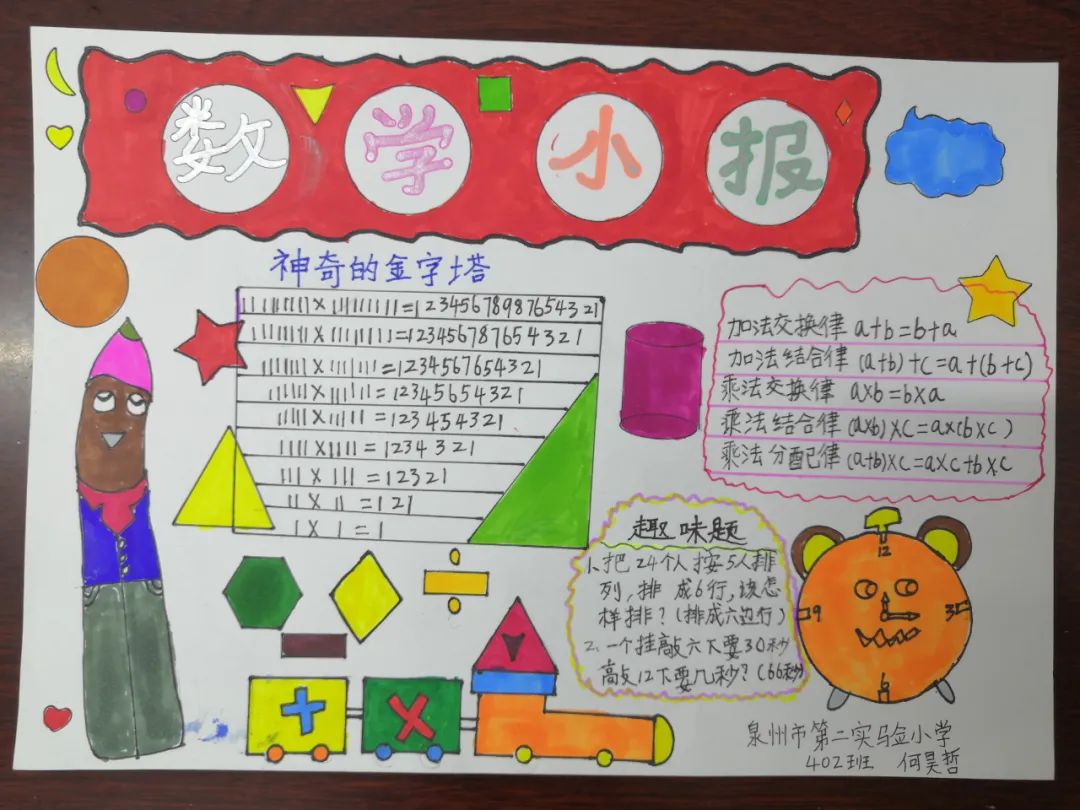 数学小报
神奇的金字塔
111111111×111111111=12345678987654321
11111111×11111111=123456787654321
1111111×1111111=1234567654321
111111×111111=12345654321
11111×11111=123454321
1111×1111=1234321
111×111=12321
11×11=121
1×1=1
加法交换律 a+b=b+a
加法结合律 (a+b)+c=a+(b+c)
乘法交换律 a×b=b×a
乘法结合律 (a×b)×c=a×(b×c)
乘法分配律 (a+b)×c=a×c+b×c
趣味题
1、把24个人按5人排
列,排成6行,该怎
样排?(排成六边行)
2、一个挂敲六下要30秒
敲12下要几秒?(66秒)
12
9
3
6
÷
+
×
泉州市第二实验小学
402班 何昊哲